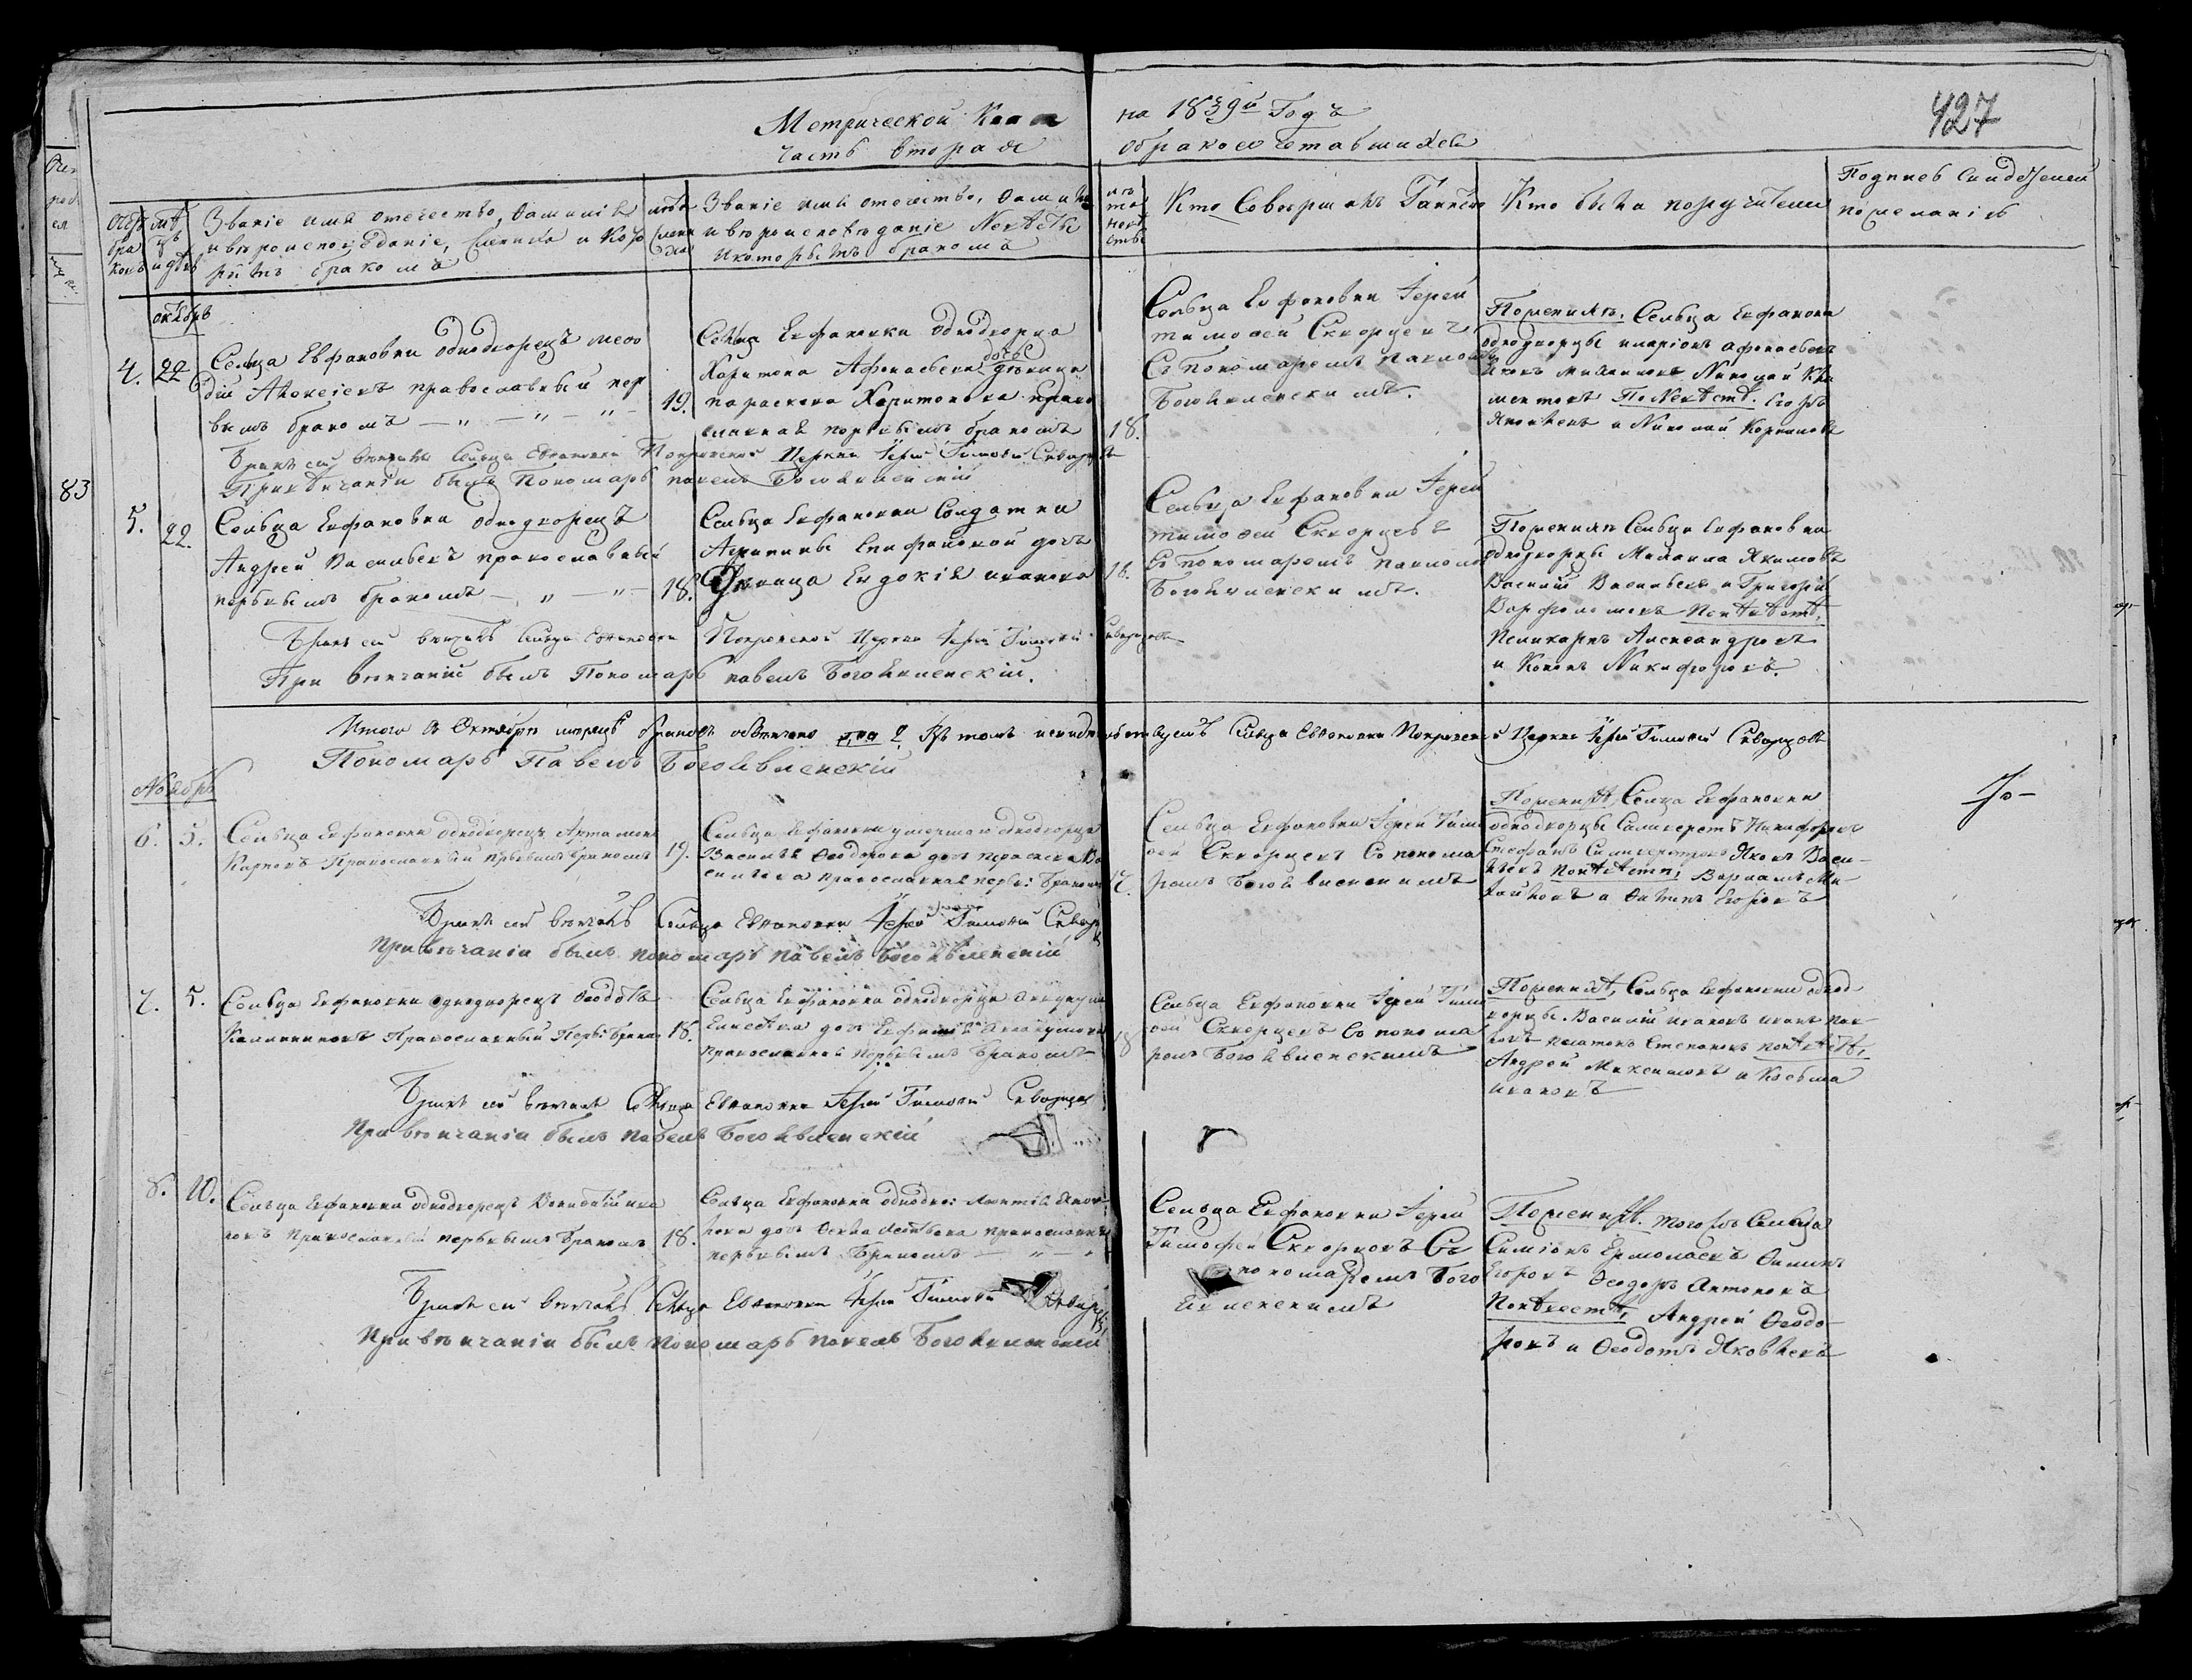 Метрической Кни
на 1839й Годъ
427
часть вторая
о бракосочетавшихся
Званіе имя отечество, Фамилія
и вѣроисповѣданіе, Жениха и Кото
рымъ бракомъ
лѣта
Жени
ха
Званіе имя отечество, Фамилія
и вѣроисповѣданіе Невѣсты
и которымъ бракомъ
лѣ
та
невѣ
сты
Кто Совершалъ Таинство
Кто были поручители
Подпись Свидетелей
83
октябрь
4. 22
Сельца Евфановки однодворецъ меѳо
дій Алексіевъ православный пер
вымъ бракомъ — „ — „ —
19.
Сельца Евфановки однодворца
Харитона Афонасьева дочь дѣвица
параскева Харитонова право
славная первымъ бракомъ
18.
Сельца Евфановки Іерей
тимоѳей Скворцевъ
Съ пономаремъ павломъ
Богоявленскимъ.
По женихѣ. Сельца Евфановки
однодворцы иларіонъ афонасьевъ
Николай Кли
ментовъ По Невѣстѣ. Егоръ
Яковлевъ и Николай Корниловъ
Бракъ сей вѣнчалъ Сельца Евфановки Покровской Церкви Іерей Тимоѳей Скворцовъ
При вѣнчаніи былъ Пономарь павелъ Богоявленскій
5. 22.
Сельца Евфановки однодворецъ
Андрей Васильевъ православный
первымъ бракомъ — „ — „ —
18.
Сельца Евфановки Солдатки
Агрипины Епифановой дочь
Дѣвица Евдокія иванова
18.
Сельца Евфановки Іерей
тимоѳей Скворцевъ
Съ пономаремъ павломъ
Богоявленскимъ.
По женихѣ Сельца Евфановки
однодворцы Михаила Якимовъ
Василій Васильевъ и Григорій
Варфоломеевъ По невѣстѣ,
Поликарпъ Александровъ
и Кононъ Никифоровъ.
Бракъ сей вѣнчалъ Сельца Евфановки Покровской Церкви Іерей Тимоѳей Скворцовъ
При вѣнчаніи былъ Пономарь павелъ Богоявленскій.
Итого в Октябрѣ мѣсяцѣ браковъ обвѣнчано два 2. Въ томъ свидѣтельствуетъ Сельца Евфановки Покровской Церкви Іерей Тимоѳей Скворцовъ
Пономарь Павелъ Богоявленскій
Ноябрь
6. 5.
Сельца Евфановки однодворецъ Артамонъ
Карповъ Православный первымъ бракомъ
19.
Сельца Евфановки умершаго однодворца
Василья Ѳеодотова дочь параскева Ва
сильева православная первы: бракомъ
17.
Сельца Евфановки Іерей Тимо
ѳей Скворцевъ Со понома
ремъ Богоявленскимъ
По женихѣ, Сельца Евфановки
однодворцы Селиверстъ Никифоровъ
Стефанъ Селиверстровъ Яковъ Васи-
льевъ По невѣстѣ, Варламъ Ми-
хайловъ и Филипъ Егоровъ
Бракъ сей вѣнчалъ Сельца Евфановки Іерей Тимоѳей Скворц
При вѣнчаніи былъ пономарь павелъ Богоявленскій
7. 5.
Сельца Евфановки однодворецъ Ѳеодотъ
Калининовъ Православный Первы: брако
18.
Сельца Евфановки однодворца
Елисѣева дочь Евфимія
православная первымъ бракомъ
18
Сельца Евфановки Іерей Тимо
ѳей Скворцевъ Со понома
ремъ Богоявленскимъ
По женихѣ, Сельца Евфановки однод
ворцы. Василій ивановъ иванъ
платонъ Степановъ по невѣстѣ,
Андрей Максимовъ и Козьма
ивановъ
Бракъ сей вѣнчалъ Сельца Евфановки Іерей Тимоѳей Скворцовъ
При вѣнчаніи былъ павелъ Богоявленскій
8. 10.
Сельца Евфановки однодворецъ ива
новъ Православный первымъ бракомъ
18.
Сельца Евфановки однодво: Яков
лева дочь православная
первымъ бракомъ — „ —
Сельца Евфановки Іерей
Тимоѳей Скворцовъ Съ
пономаремъ Бого
явленскимъ
По женихѣ. того жъ Сельца
Симіонъ Ермолаевъ Филипъ
Егоровъ Ѳеодоръ Антоновъ
По невѣстѣ, Андрей Ѳеодо-
ровъ и Ѳеодотъ Яковлевъ
Бракъ сей вѣнчалъ Сельца Евфановки Іерей Тимоѳей Скворцов
При вѣнчаніи былъ пономарь павелъ Богоявленскій